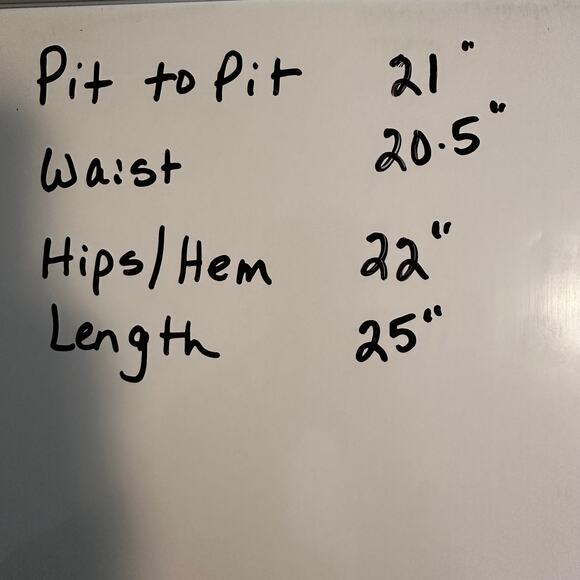 Pit to Pit 21"
Waist 20.5"
Hips/Hem 22"
Length 25"